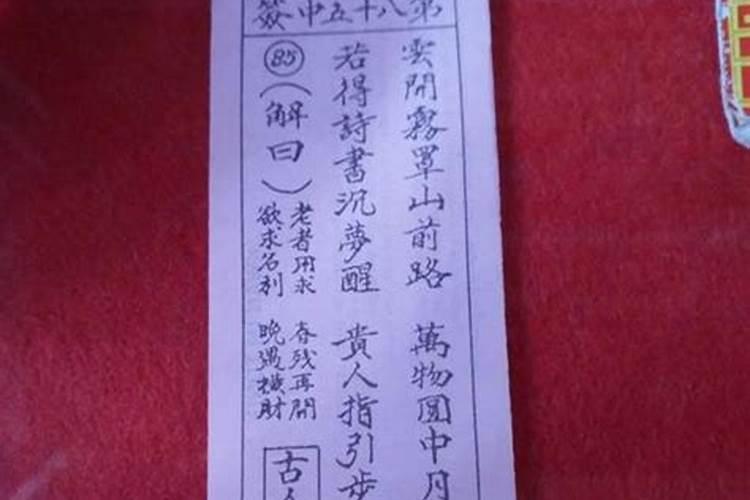 第八十五中簽
雲開霧罩山前路 萬物圓中月
若得詩書沉夢醒 貴人指引步
85
(解曰)
老者用求 春残再開
欲求名利 晚遇橫財
古人